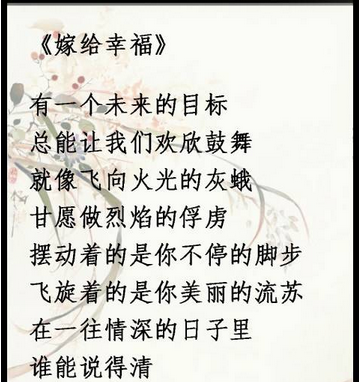 《嫁给幸福》
有一个未来的目标
总能让我们欢欣鼓舞
就像飞向火光的灰蛾
甘愿做烈焰的俘虏
摆动着的是你不停的脚步
飞旋着的是你美丽的流苏
在一往情深的日子里
谁能说得清